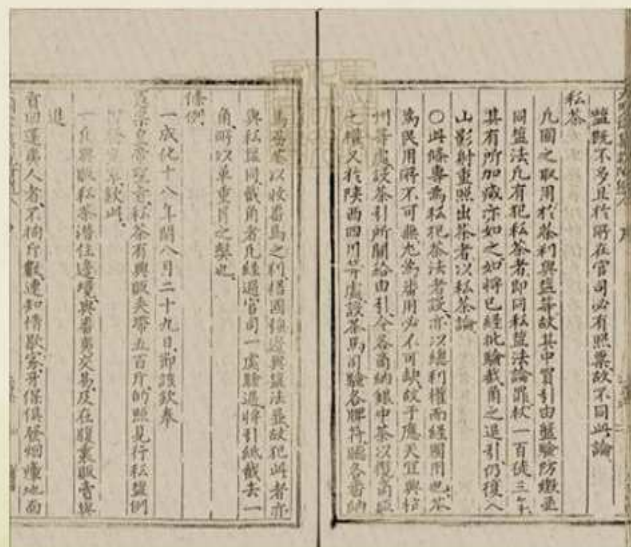 鹽既不多且於所在官司必有照票故不同此論
私茶
凡國之取用於茶利與鹽等故其中買引由盤驗防繳並
同鹽法凡有犯私茶者即同私鹽法論罪杖一百徒三年
其有所加減亦如之如將已經批驗截角之退引仍復入
山影射重照出茶者以私茶論
〇此條專為私犯茶法者設亦以總利權而經國用也茶
為民用所不可無尤為番用必不可缺故于應天宜興杭
州等處設茶引所關給由引令各商納銀中茶以復商
之懷又於陝西四川等處設茶馬司驗各牌符聽各番納
馬易茶以收番馬之利楷國 邊與鹽法並故犯此者亦
與私鹽同截角者凡經過官司一處驗過將引紙截去一
角所以革重冒之弊也
條例
一成化十八年閏八月二十九日節該欽奉
憲宗皇帝聖旨私茶有興販夾帶五百斤的照見行私鹽例
押發充軍欽此
一凡興販私茶潛住邊境與番夷交易及在腹裏販賣與
進
貢回還夷人者不拘斤數連知情歇家牙保俱發烟瘴地面